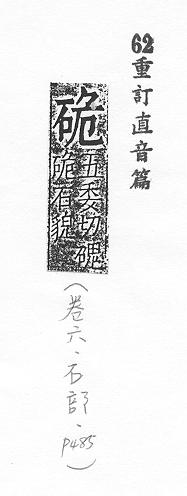 62重訂直音篇
硊
五委切䃬
硊石貌
（卷六·石部·p485）